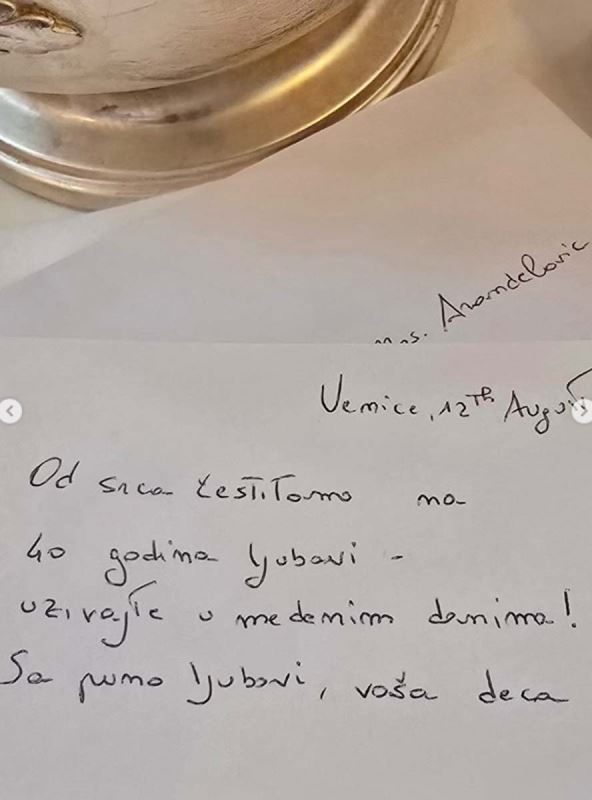 mrs. Aranđelovic
Venice, 12th August
Od srca čestitamo na
40 godina ljubavi -
uživajte u medenim danima!
Sa puno ljubavi, vaša deca